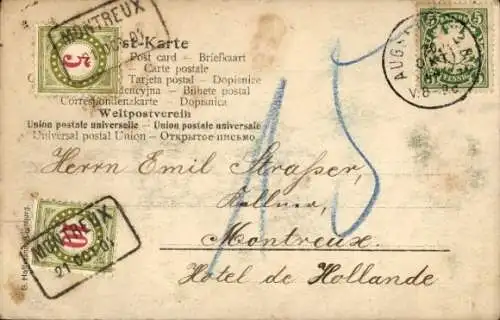 MONTREUX
Post-Karte
Post card – Briefkaart
Carte postale
Tarjeta postal – Dopisnice
Bilhete postal
Correspondenzkarte – Dopisnica
Weltpostverein
Union postale universelle – Union postale universale
Universal postal Union – Открытое письмо.
5
AUGSB
5
V.8-9
15
Herrn Emil Strasser,
Kellner,
Montreux.
Hotel de Hollande
10
MONTREUX
21 OCT 01